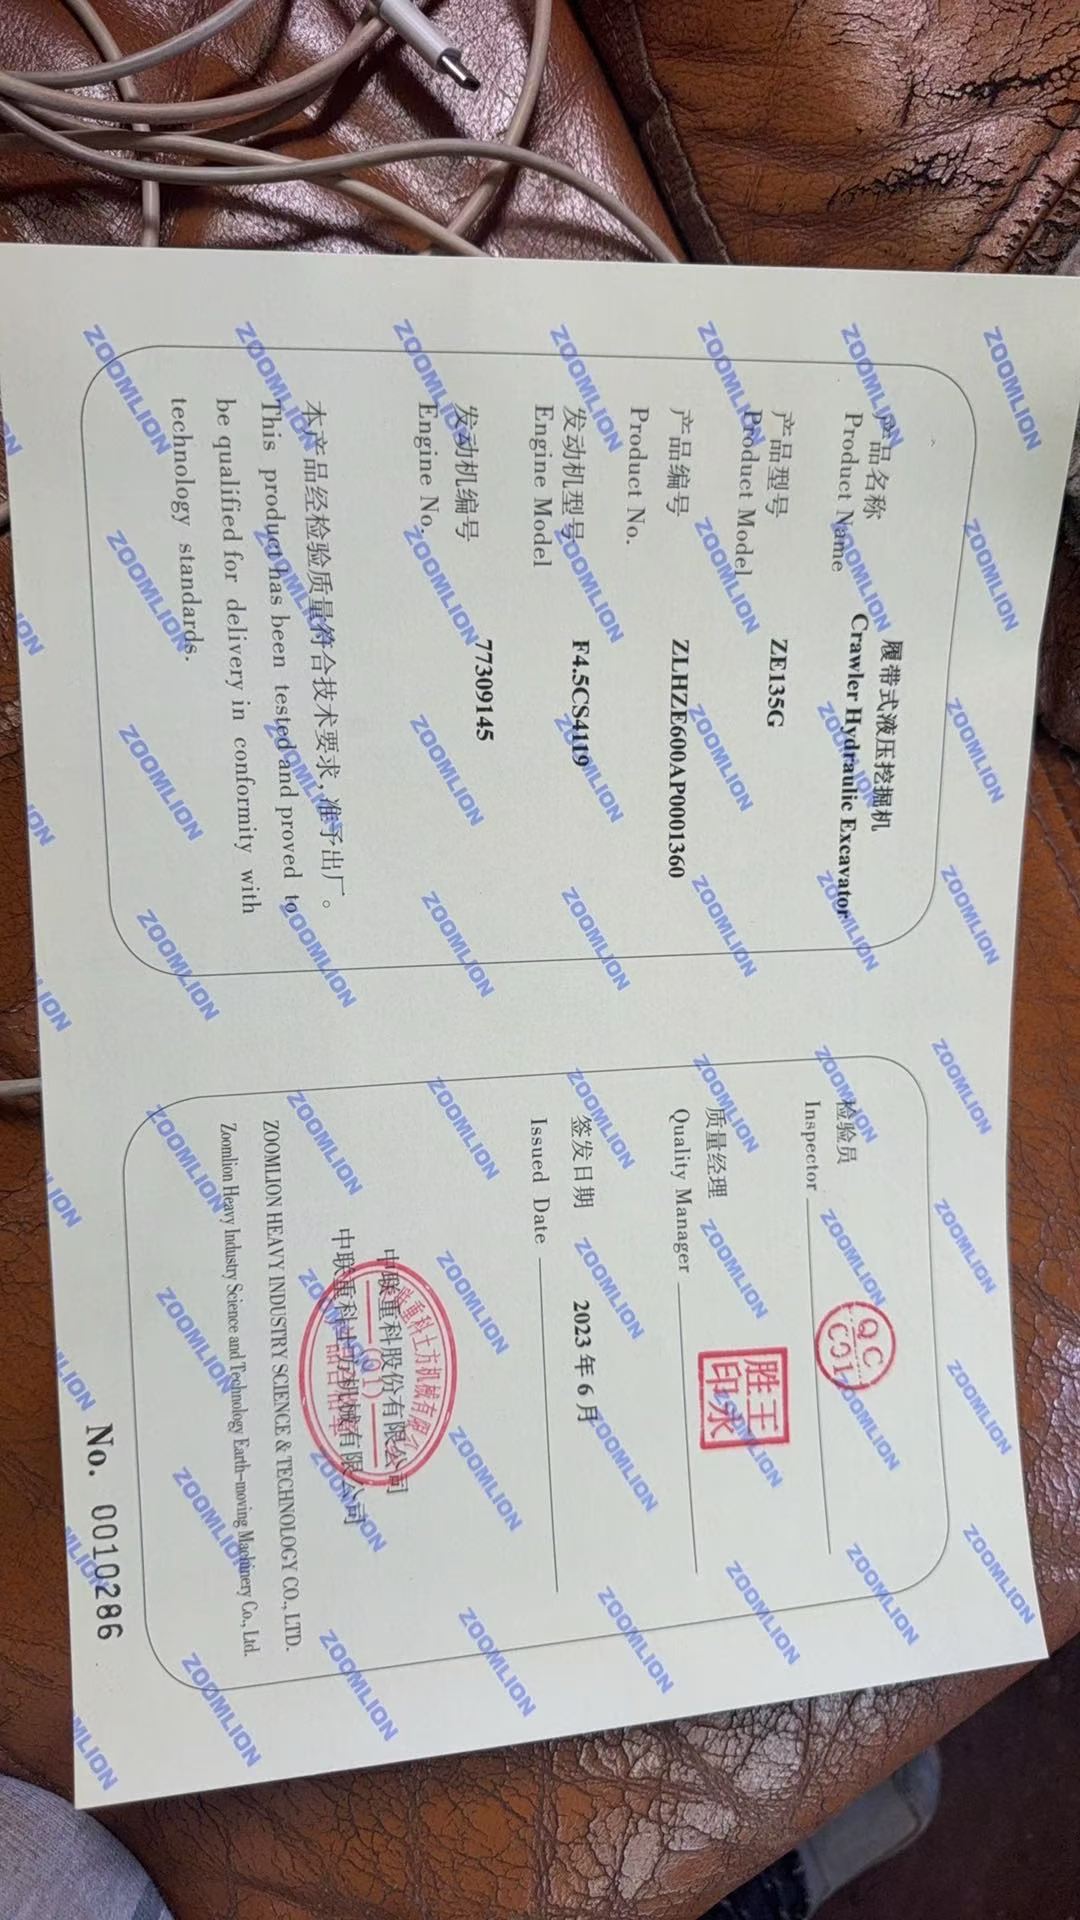 产品名称
Product Name
履带式液压挖掘机
Crawler Hydraulic Excavator
产品型号
Product Model
ZE135G
产品编号
Product No.
ZLHZE600AP0001360
发动机型号
Engine Model
F4.5CS4119
发动机编号
Engine No.
77309145
本产品经检验质量符合技术要求,准予出厂。
This product has been tested and proved to
be qualified for delivery in conformity with
technology standards.
检验员
Inspector
QC
C01
质量经理
Quality Manager
王永胜印
签发日期
Issued Date
2023年6月
中联重科股份有限公司
中联重科土方机械有限公司
ZOOMLION HEAVY INDUSTRY SCIENCE & TECHNOLOGY CO., LTD.
Zoomlion Heavy Industry Science and Technology Earth-moving Machinery Co., Ltd.
No. 0010286
ZOOMLION